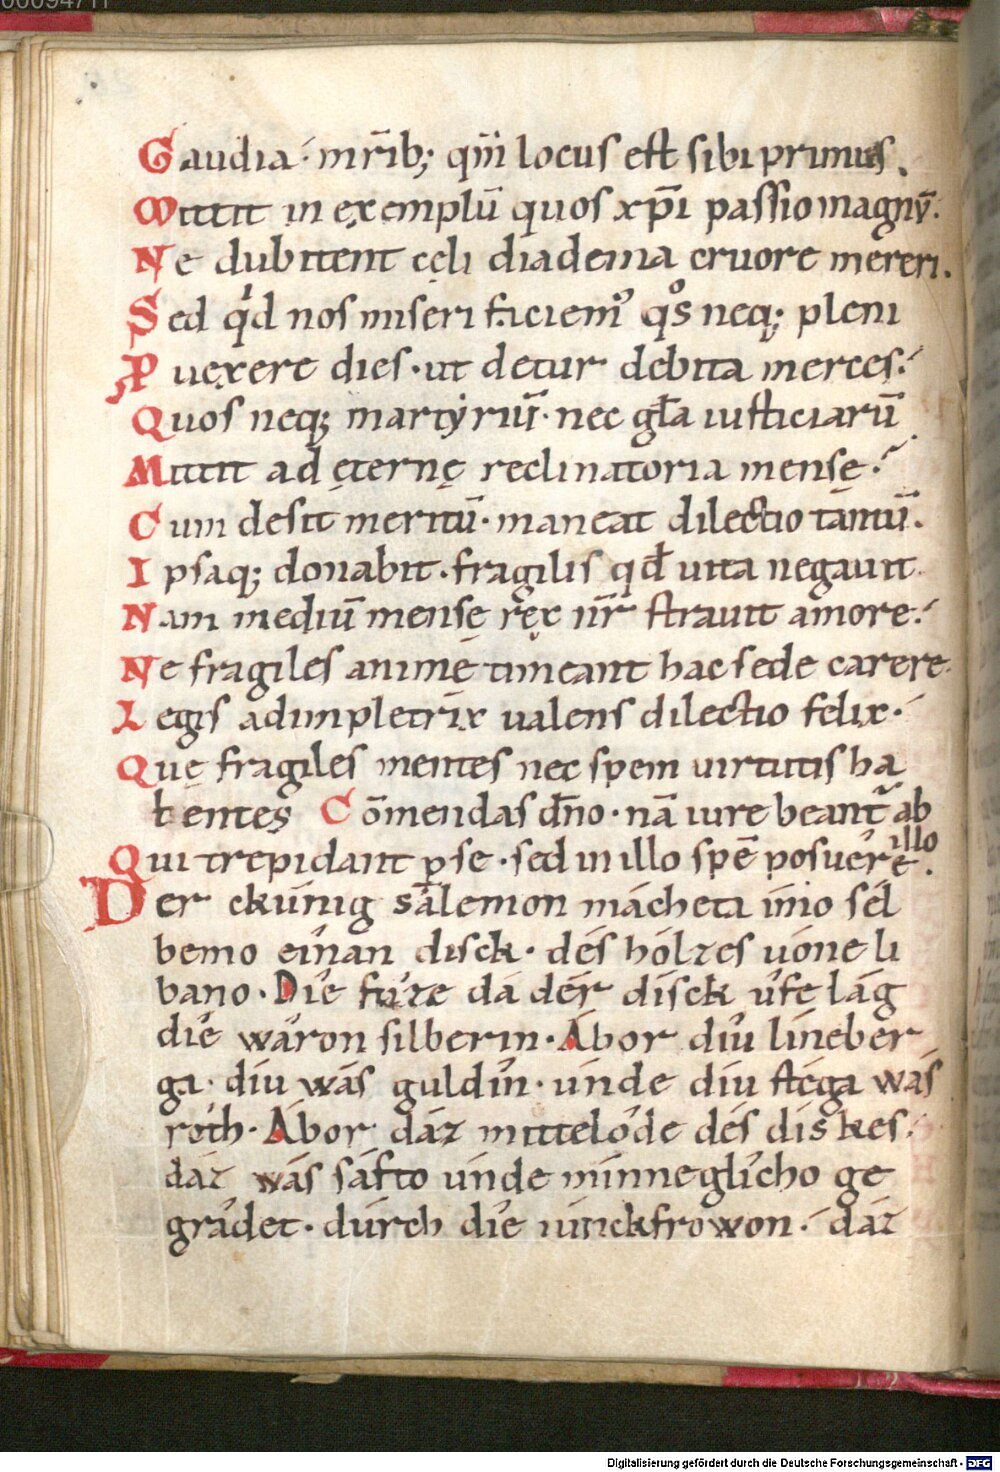 00094711
Gaudia· mr̄ib; qm̄ locus est sibi primus.
Mittit in exemplū quos xp̄i passio magnꝰ.
Ne dubitent cęli diadema cruore mereri.
Sed qͥd nos miseri faciemꝰ qͦs neq; pleni
P uexere dies· ut detur debita merces?
Quos neq; martyriū· nec gl̄a iusticiarū
Mittit ad ęternę reclinatoria mensę?
Cum desit meritū· maneat dilectio tantū.
Ipsaq; donabit· fragilis qđ uita negauit.
Nam mediū mensę rex nr̄ strauit amore?
Ne fragiles animę timeant hac sede carere.
Legis adimpletrix ualens dilectio felix·
Quę fragiles mentes nec spem uirtutis ha
bentes Cōmendas dn̄o· nā iure beant᷑ ab illo
Qui trepidant p se· sed in illo spē posuere.
Der ckúnig sálemon mácheta imo sél
bemo eínan disck· dés hólzes uóne li
bano· Díe fúze dá dér disck úfe lág
díe wáron silberin· Ábor díu líneber
ga· diu wás guldín· únde diu stéga wás
róth· Ábor dáz míttelóde dés diskes·
dáz wás sáfto únde mínneglícho ge
grádet· dúrch díe iúnckfrowon· dáz
Digitalisierung gefördert durch die Deutsche Forschungsgemeinschaft - DFG